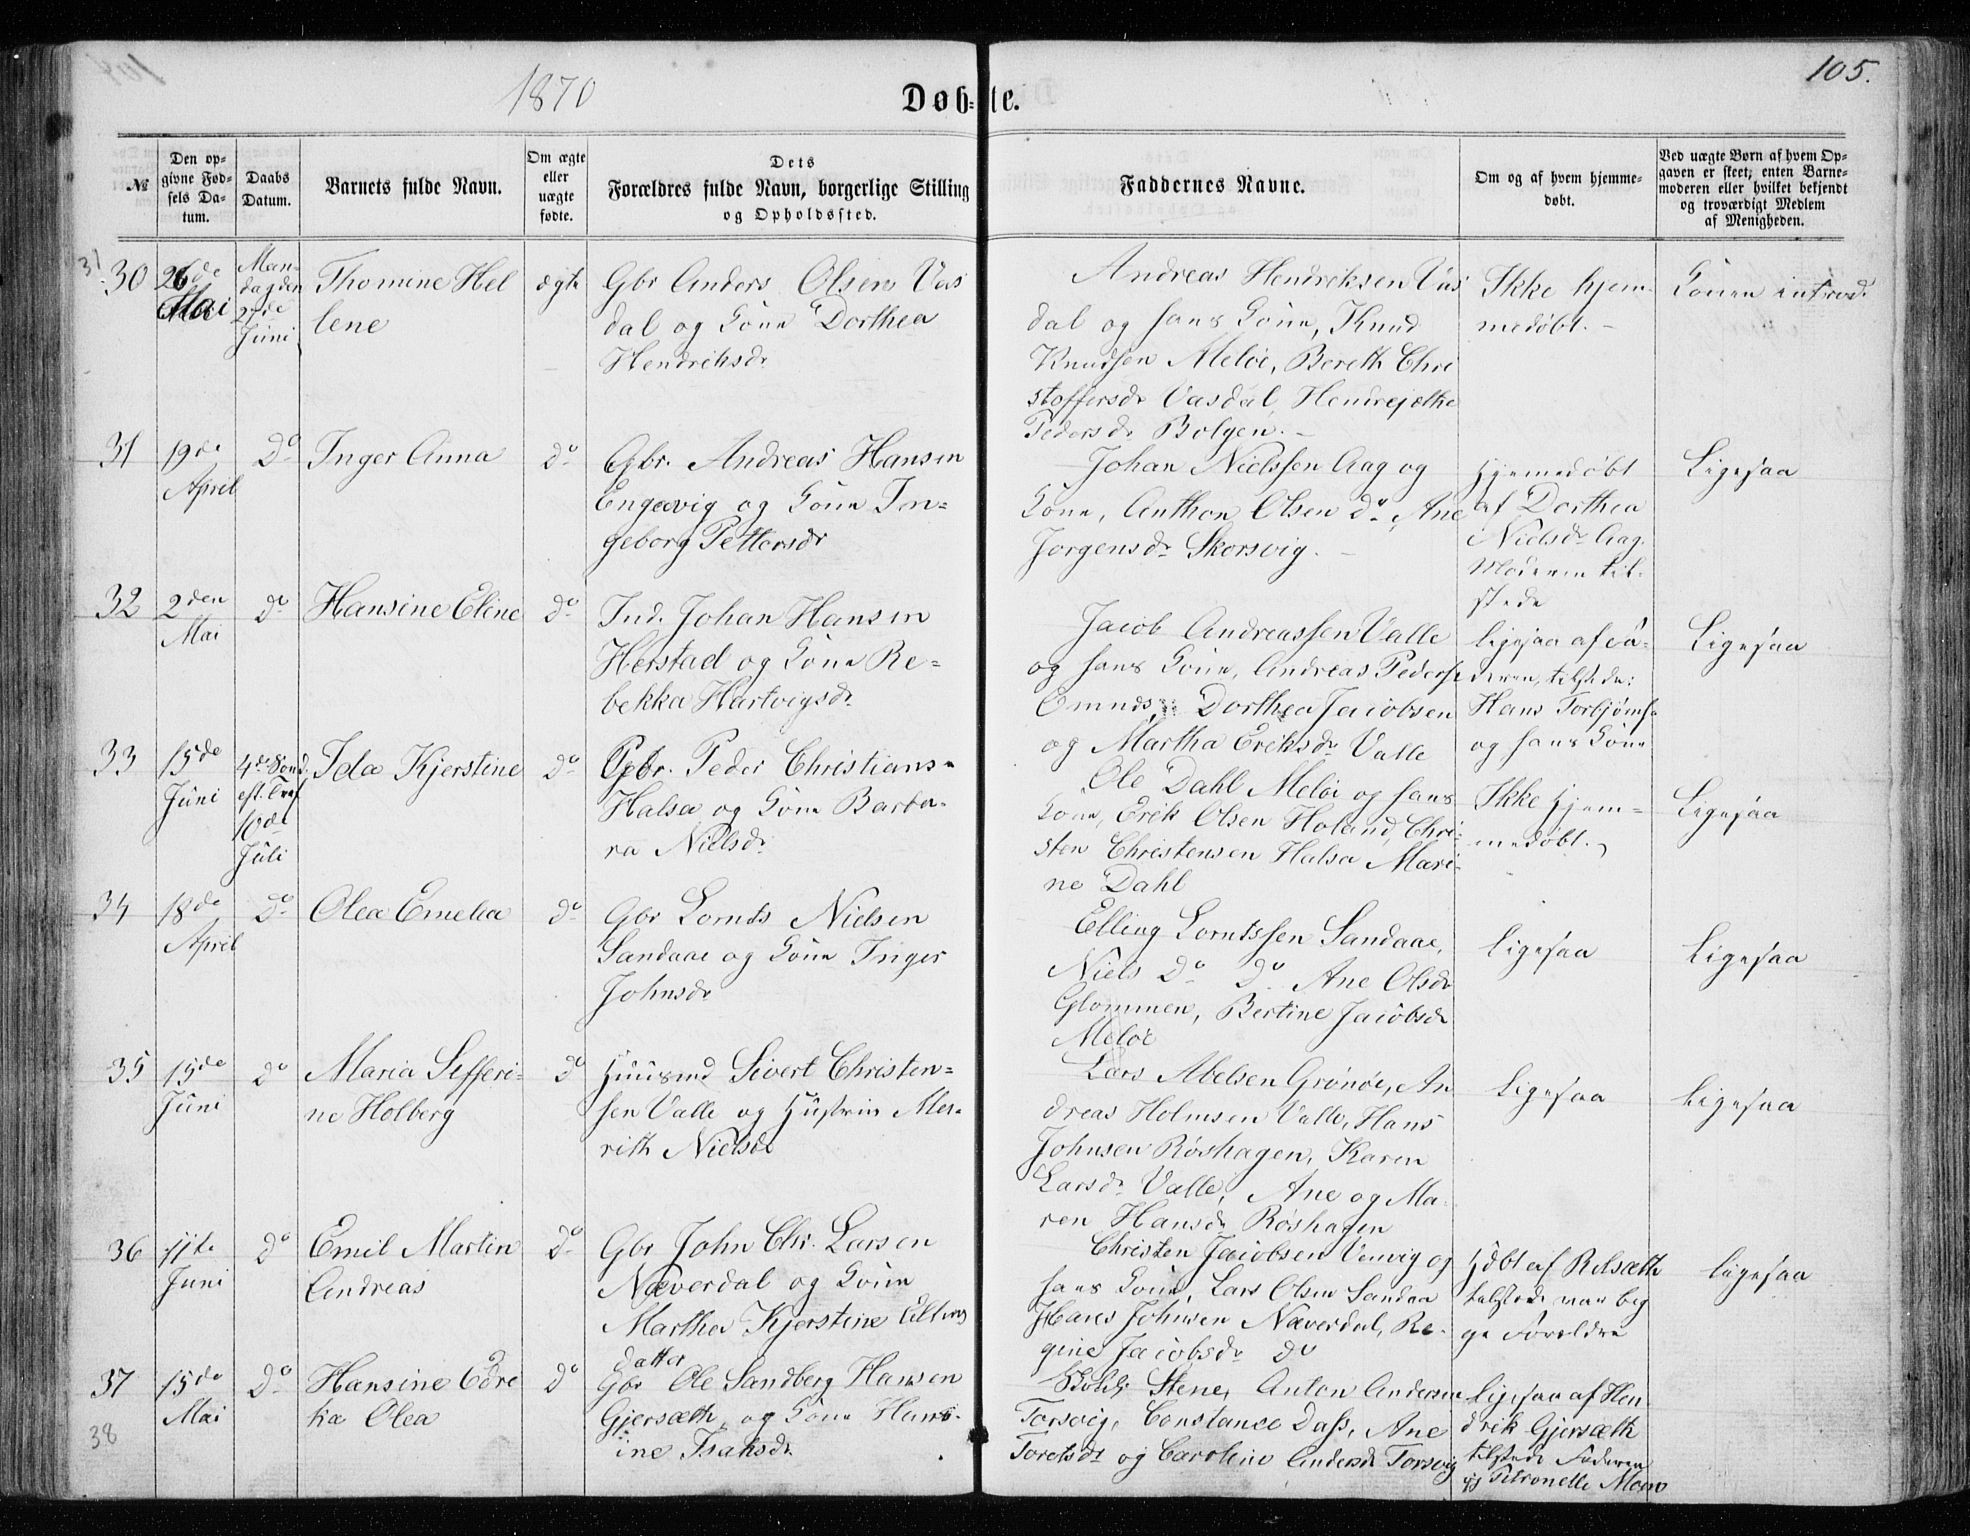 1870
Døb=te.
105.
№
Den op=
givne Fød=
sels Da=
tum.
Daabs
Datum.
Barnets fulde Navn.
Om ægte
eller
uægte
fødte.
Dets
Forældres fulde Navn, borgerlige Stilling
og Opholdssted.
Faddernes Navne.
Om og af hvem hjemme-
døbt.
Ved uægte Børn af hvem Op-
gaven er skeet; enten Barne-
moderen eller hvilket bekjendt
og troværdigt Medlem
af Menigheden.
31
30
26de
Mai
Man-
dag den
27de
Juni
Thomine Hel
lene
ægte
Gbr Anders Olsen Vas
dal og Kone Dorthea
Hendriksdr
Andreas Hendriksen Vas
dal og hans Kone, Knud
Knudsen Meløe, Bereth Chri
stoffersdr Vasdal, Henrejethe
Pedersdr Bolgen. -
Ikke hjem-
medøbt. -
Konen introd.
31
19de
April
Do
Inger Anna
do
Gbr. Andreas Hansen
Engavig og Kone In=
geborg Pettersdr
Johan Nielssen Aag og
Kone, Anthon Olsen do, Ane
Jørgensdr Skorsvig. -
Hjemmedøbt
af Dorthea
Nielsdr Aag.
Moderen til-
stede
Ligesaa
32
2den
Mai
do
Hansine Eline
do
Ind. Johan Hansen
Herstad og Kone Re=
bekka Hartvigsdr
Jacob Andreassen Valle
og hans Kone, Andreas Pederse
Dorthea Jacobsen
og Martha Eriksdr Valle
Ligesaa af Fa-
deren, tilstede:
Hans Torbjørns.
og hans Kone
Ligesaa
33
15de
Juni
4de Sønd.
eft. Tref
10de
Juli
Ida Kjerstine
do
Gbr. Peder Christians-
Halsa og Kone Barba-
ra Nielsdr
Ole Dahl Meløe og hans
Kone, Erik Olsen Holand, Chri-
sten Christensen Halsa Mari-
ne Dahl
Ikke Hjem=
medøbt.
Ligesaa
34
18de
April
Do
Olea Emelia
do
Gbr Lornts Nielsen
Sandaae og Kone Inger
Johnsdr
Elling Lorntssen Sandaae,
Niels Do Do. Ane Olsdr
Glommen, Bertine Jacobsdr
Meløe
Ligesaa
Ligesaa
35
15de
Juni
do
Maria Sefferi-
ne Holberg
do
Huusmd Sivert Christen=
sen Valle og Hustrue Me-
rith Nielsdr
Lars Abelsen Grønøe, An
dreas Holmsen Valle, Hans
Johnsen Røshagen, Karen
Larsdr Valle, Ane og Ma-
ren Hansdr Røshagen
Ligesaa
Ligesaa
36
11te
Juni
do
Emil Martin
Andreas
do
Gbr John Chr. Larsen
Næverdal og Kone
Martha Kjerstine Ellings
datter
Christen Jacobsen Venvig og
hans Kone, Lars Olsen Sandaa
Hans Johnsen Næverdal, Re-
gine Jacobsdr do
Hdøbt af Relsæth
tilstede var beg
ge Forældre
Ligesaa
37
15de
Mai
Do
Hansine Edre
kia Olea
do
Gbr Ole Sandberg Hansen
Gjersæth, og Kone Hans-
ine Isaksdr
Stene, Anton Andersen
Torsvig, Constance Dass, Ane
Toretsdr og Caroline Andersdr Torsvig
Ligesaa af Hen
drik Gjersæth
tilstede Faderen
og Petronelle Moen
38